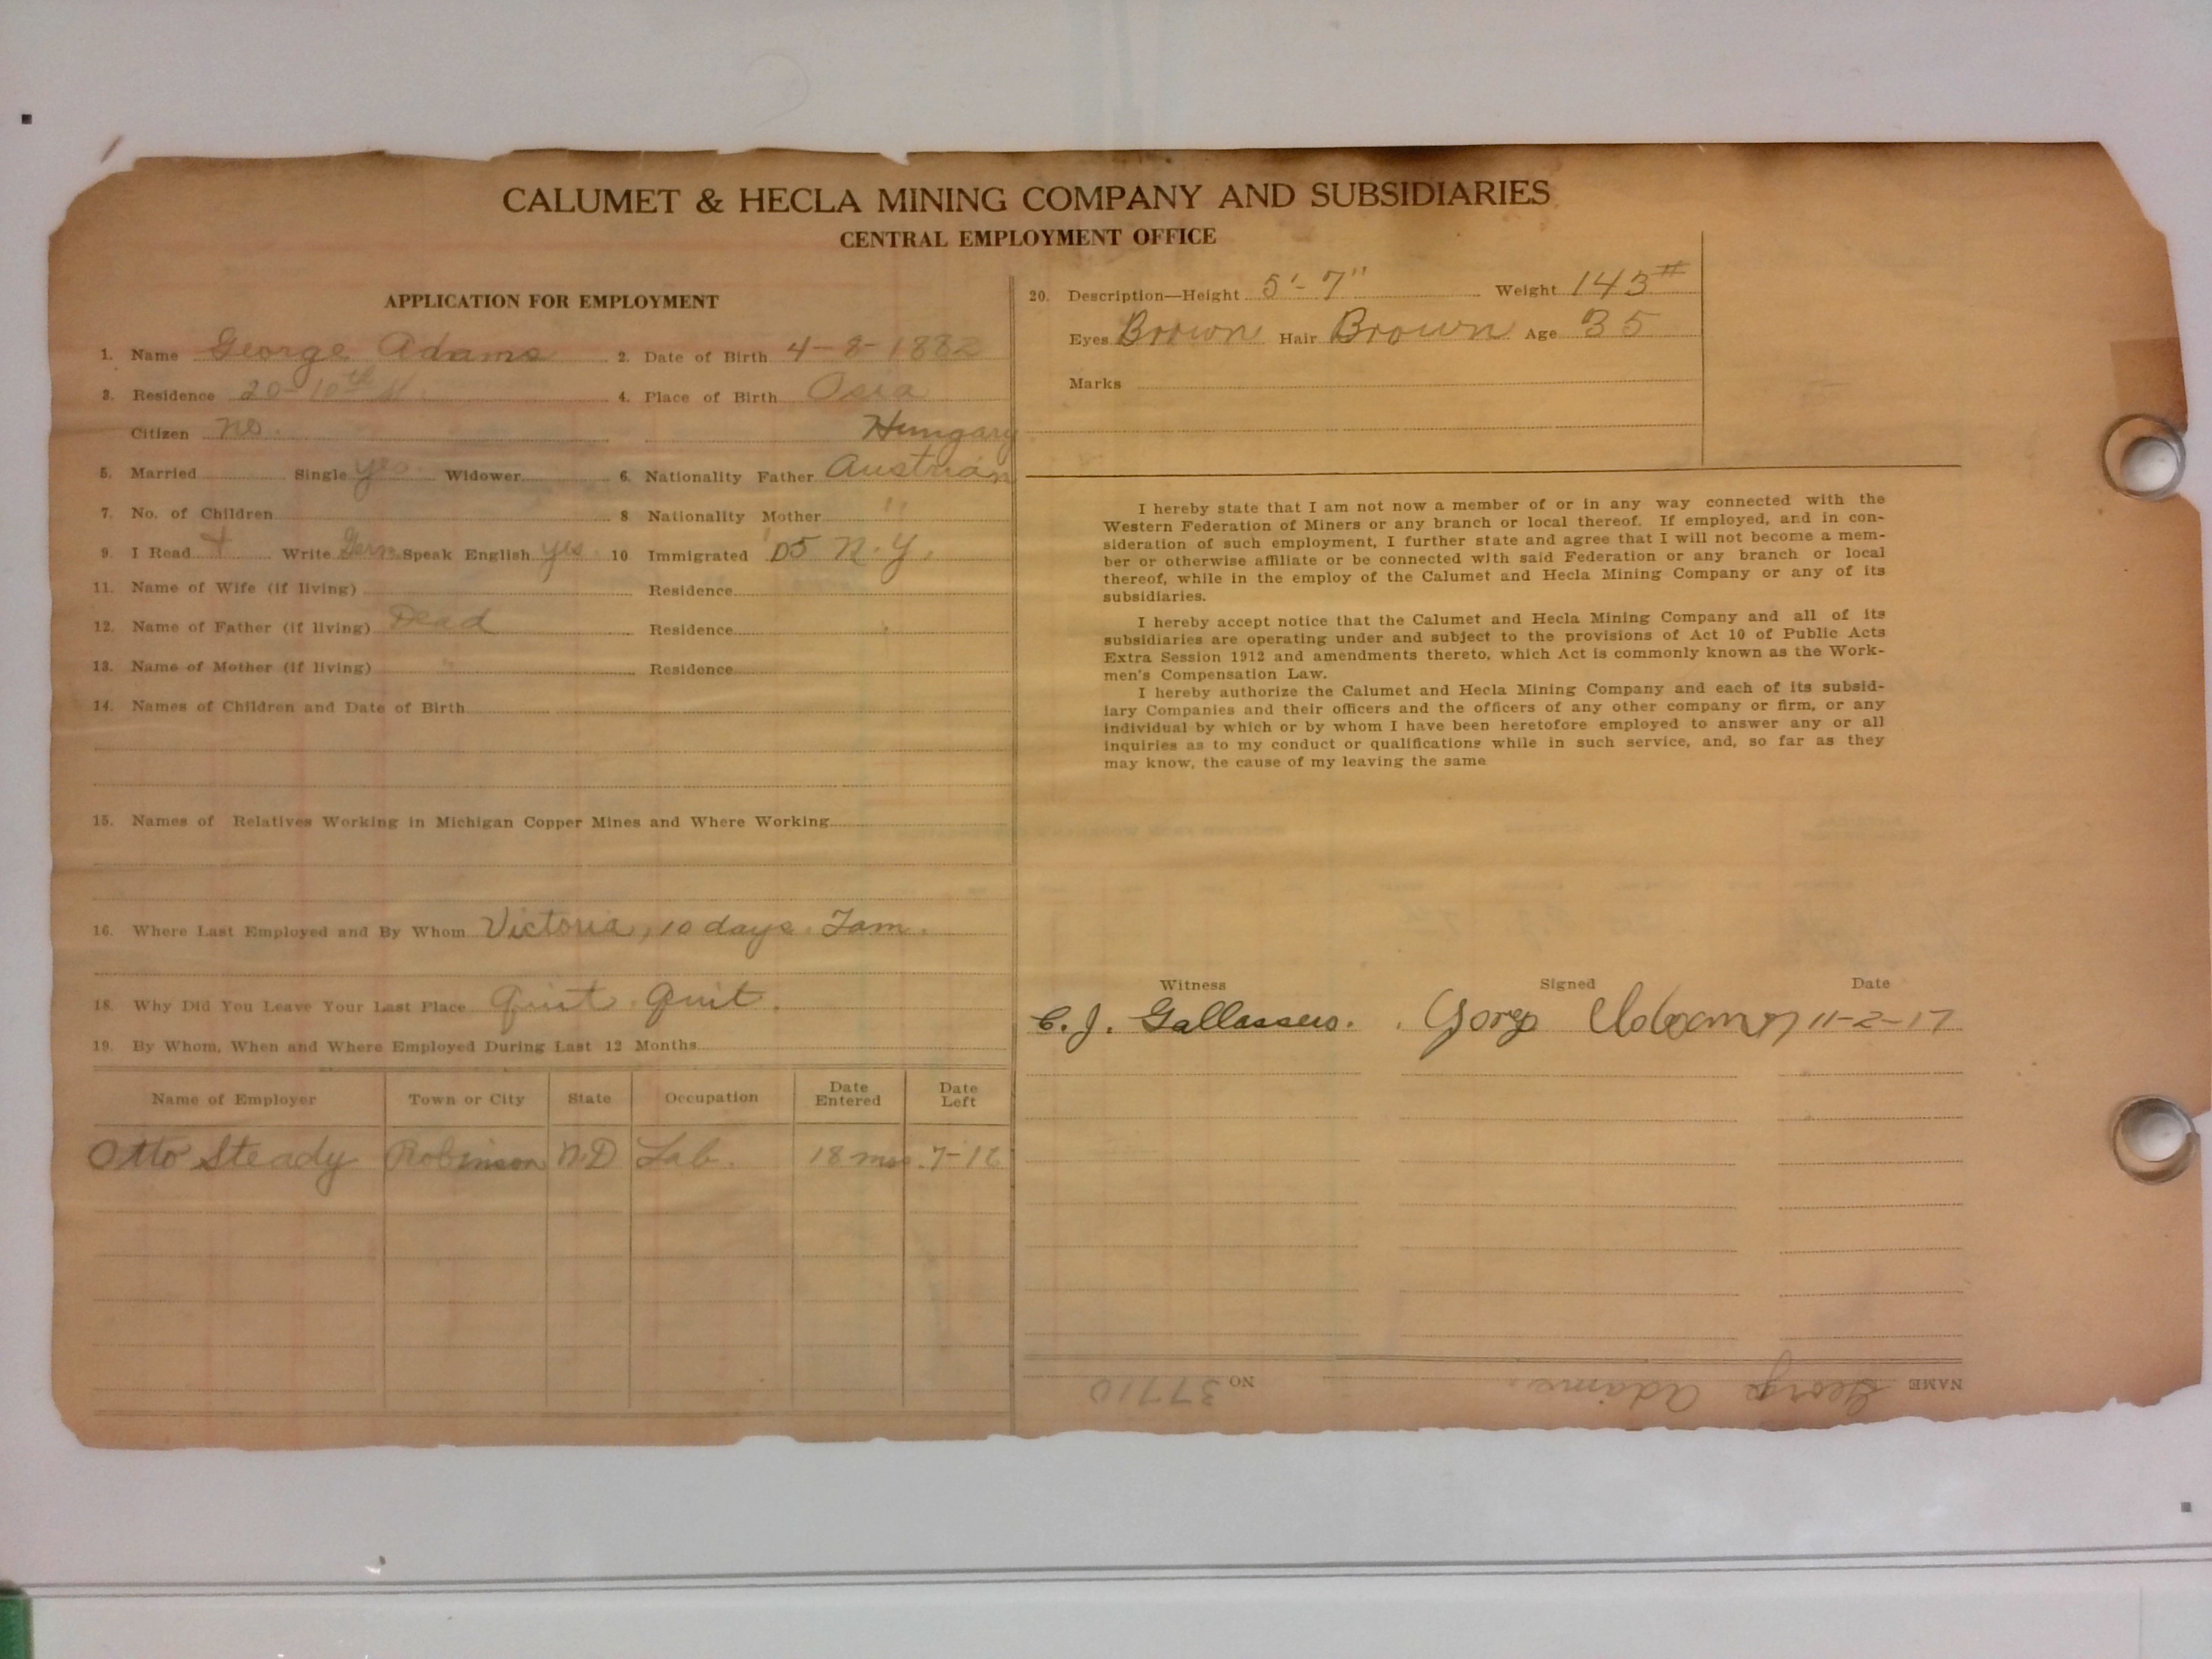 CALUMET & HECLA MINING COMPANY AND SUBSIDIARIES
CENTRAL EMPLOYMENT OFFICE
APPLICATION FOR EMPLOYMENT
1. Name George Adams 2. Date of Birth 4-8-1882
3. Residence 20-10th st. 4. Place of Birth Osia
Citizen no. Hungary
5. Married Single yes. Widower 6. Nationality Father Austrian
7. No. of Children 8 Nationality Mother "
9. I Read + Write Germ Speak English yes 10 Immigrated '05 N.Y.
11. Name of Wife (if living) Residence
12. Name of Father (if living) Dead Residence
13. Name of Mother (if living) " Residence
14. Names of Children and Date of Birth
15. Names of Relatives Working in Michigan Copper Mines and Where Working
16. Where Last Employed and By Whom Victoria, 10 days. Tam.
18. Why Did You Leave Your Last Place Quit. Quit.
19. By Whom, When and Where Employed During Last 12 Months
Name of Employer Town or City State Occupation Date Entered Date Left
Otto Steady Robinson N.D Lab. 18 mos. 7-12
20. Description—Height 5'-7" Weight 143#
Eyes Brown Hair Brown Age 35
Marks
I hereby state that I am not now a member of or in any way connected with the
Western Federation of Miners or any branch or local thereof. If employed, and in con-
sideration of such employment, I further state and agree that I will not become a mem-
ber or otherwise affiliate or be connected with said Federation or any branch or local
thereof, while in the employ of the Calumet and Hecla Mining Company or any of its
subsidiaries.
I hereby accept notice that the Calumet and Hecla Mining Company and all of its
subsidiaries are operating under and subject to the provisions of Act 10 of Public Acts
Extra Session 1912 and amendments thereto, which Act is commonly known as the Work-
men's Compensation Law.
I hereby authorize the Calumet and Hecla Mining Company and each of its subsid-
iary Companies and their officers and the officers of any other company or firm, or any
individual by which or by whom I have been heretofore employed to answer any or all
inquiries as to my conduct or qualifications while in such service, and, so far as they
may know, the cause of my leaving the same
Witness Signed Date
C. J. Gallassero. 11-2-17
NAME George Adams. NO 37710